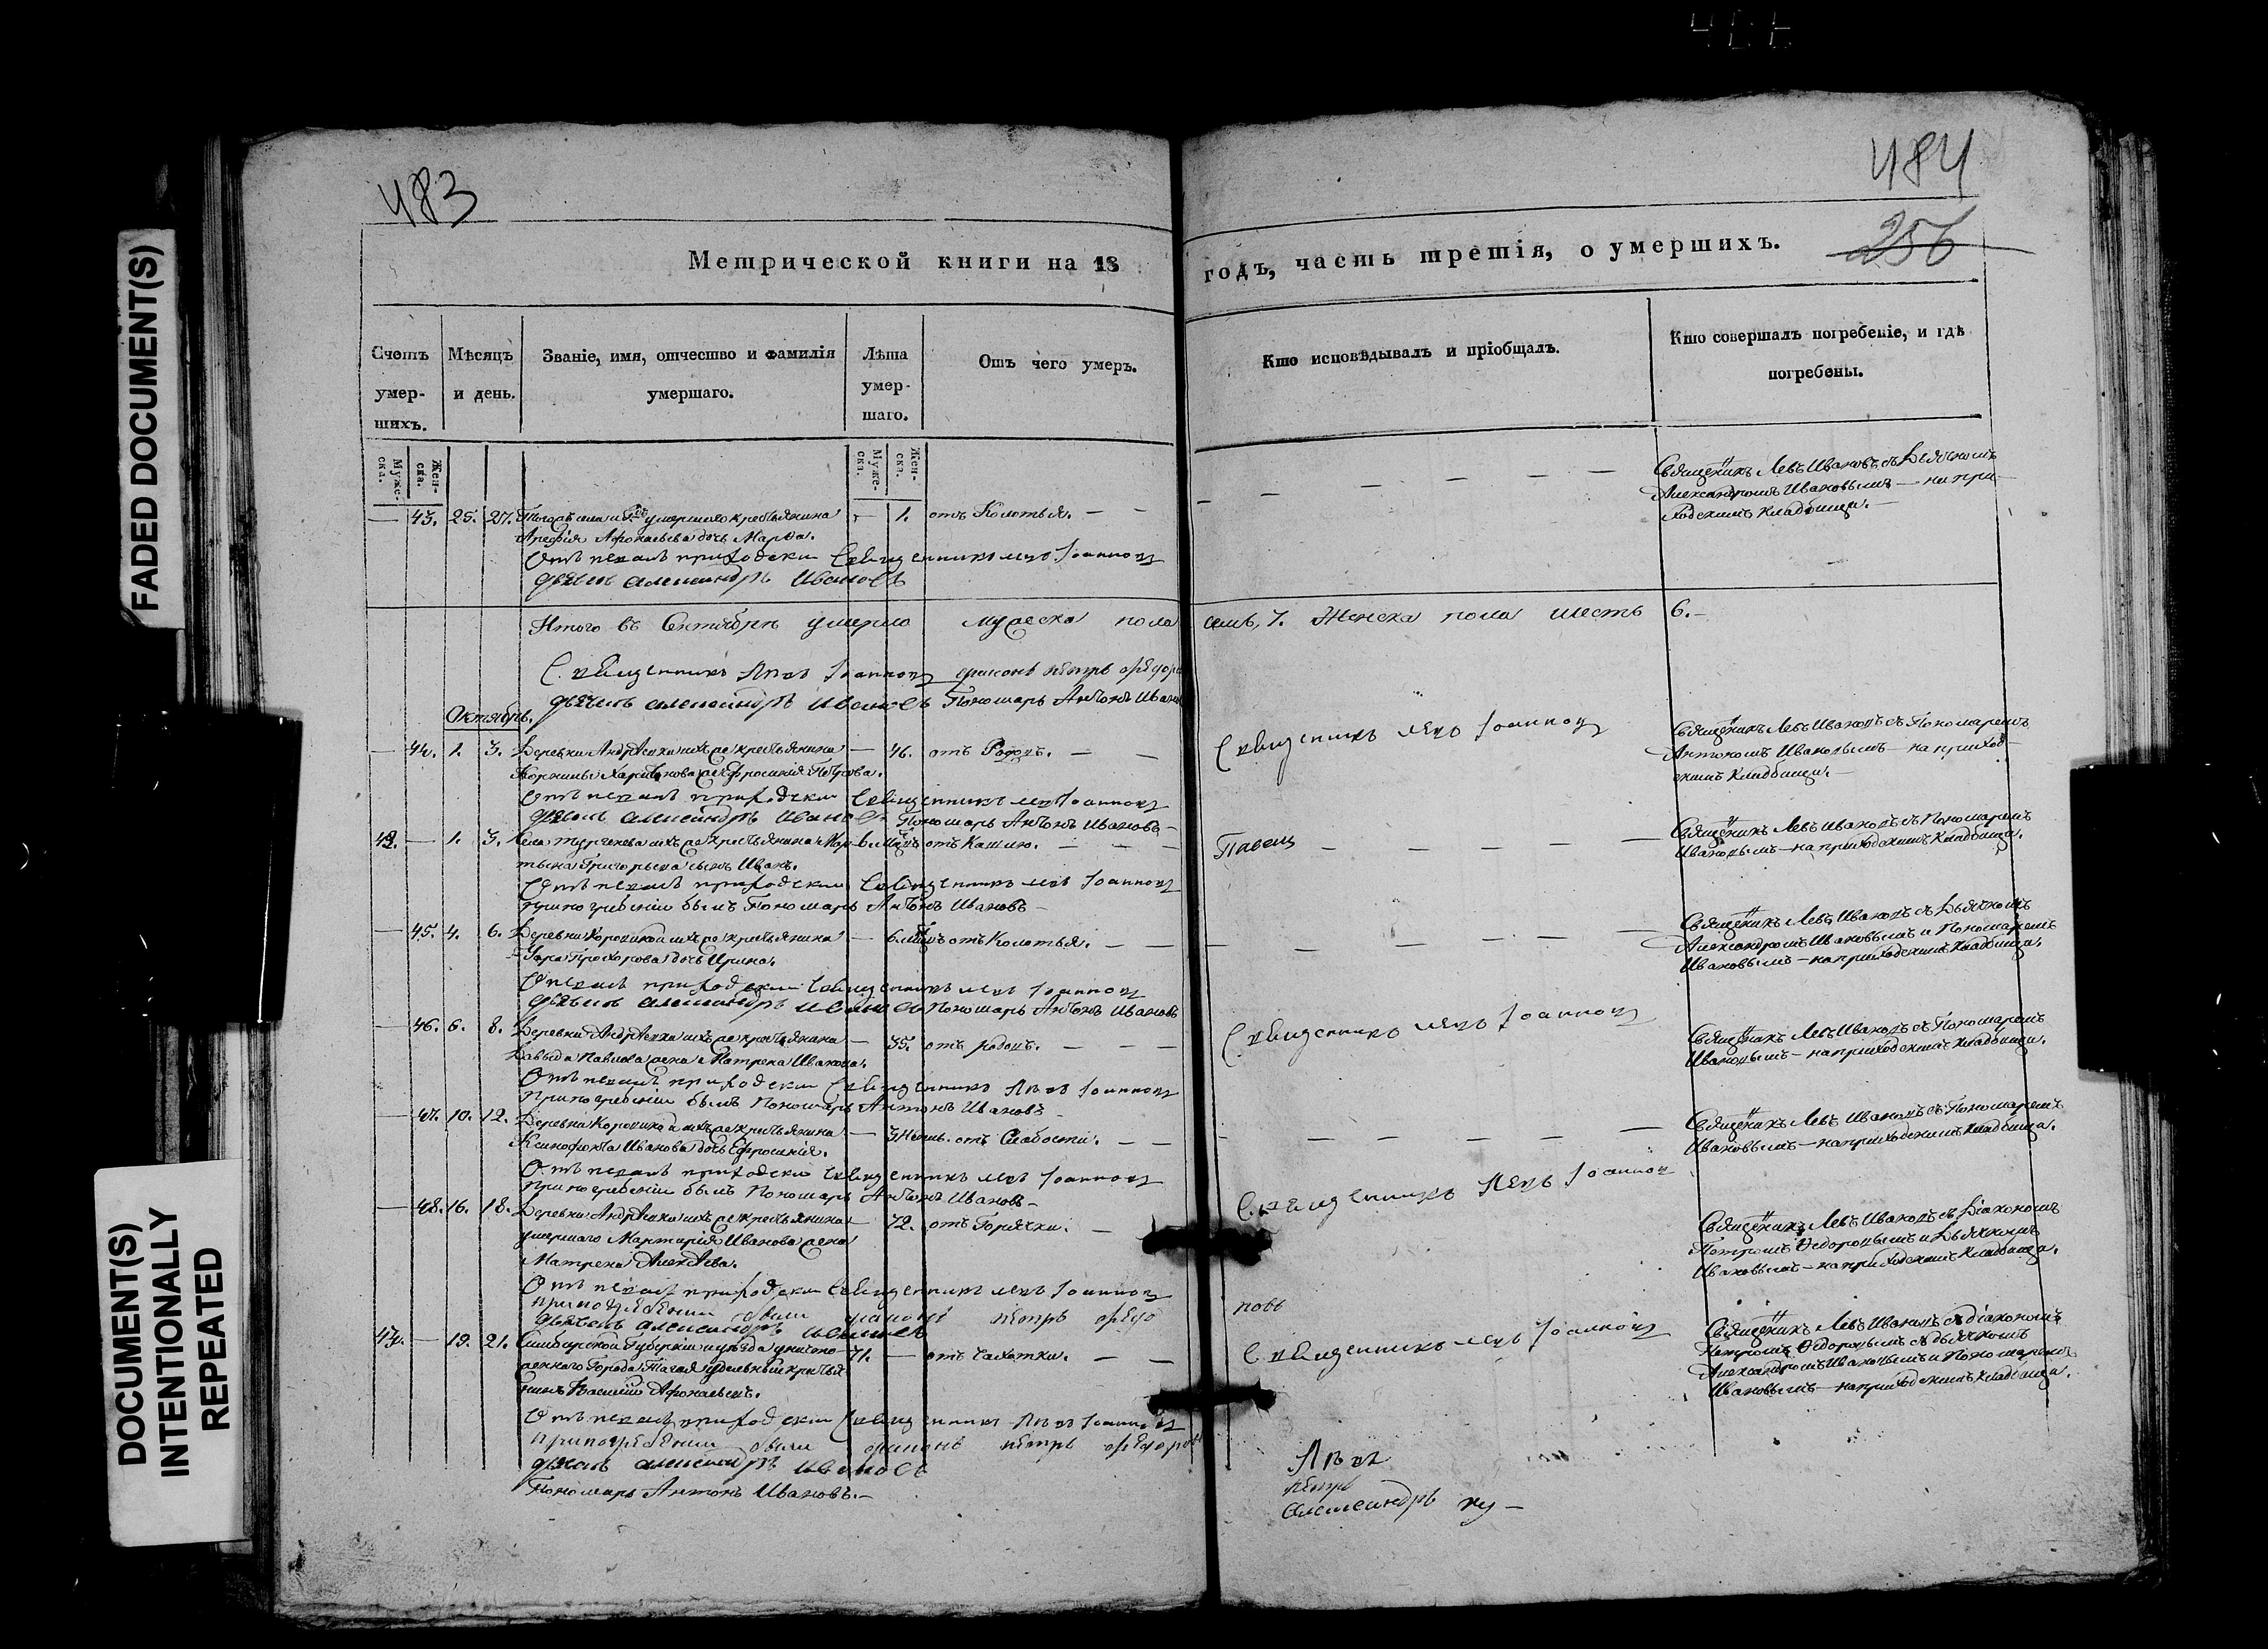 FADED DOCUMENT(S)
DOCUMENT(S)
INTENTIONALLY
REPEATED
483
484
256
Метрической книги на 18
годъ, часть третія, о умершихъ.
Счетъ умер-шихъ.
Мѣсяцъ и день.
Званіе, имя, отчество и фамилія умершаго.
Лѣта умер-шаго.
Отъ чего умеръ.
Кто исповѣдывалъ и пріобщалъ.
Кто совершалъ погребеніе, и гдѣ погребены.
Муже-ска.
Жен-ска.
Муже-ска.
Жен-ска.
— 43. 25. 27. умершаго крестьянина — 1. отъ Колотья. — —
Арефія Афонасьева дочь Марѳа.
Отпевалъ приходски Священникъ Левъ Іоанновъ
дьячекъ Александръ Ивановъ
Священникъ Левъ Ивановъ съ Дьячкомъ
Александромъ Ивановымъ — на при-
ходскомъ кладбищи. —
Итого въ Сентябрѣ умерло мужеска пола семь, 7. Женска пола шесть 6. —
Священникъ Левъ Іоанновъ диаконъ Петръ Федоро
дьячекъ Александръ Ивановъ Пономарь Антонъ Ивано
Октябрь.
— 44. 1. 3. Деревни крестьянина — 46. отъ Родовъ. — —
Корнилы Харитонова жена Ефросинія Петрова.
Отпевалъ приходски Священникъ Левъ Іоанновъ
дьячекъ Александръ Ивановъ Пономарь Антонъ Ивановъ —
Священникъ Левъ Іоанновъ
Священникъ Левъ Ивановъ съ Пономаремъ
Антономъ Ивановымъ — на приход-
скомъ кладбищи. —
42. — 1. 3. Села Тургенева крестьянина Мар- 6. отъ Кашлю. — — —
тына Григорьева сынъ Иванъ.
Отпевалъ приходски Священникъ Левъ Іоанновъ
при погребеніи былъ Пономарь Антонъ Ивановъ —
Священникъ Левъ Ивановъ съ Пономаремъ
Ивановымъ — на приходскомъ кладбищи.
— 45. 4. 6. Деревни крестьянина — 6. отъ Колотья. — —
Прохорова дочь Ирина.
Отпевалъ приходски Священникъ Левъ Іоанновъ
дьячекъ Александръ Ивановъ Пономарь Антонъ Ивановъ
Священникъ Левъ Ивановъ съ Дьячкомъ
Александромъ Ивановымъ и Пономаремъ
Ивановымъ — на приходскомъ кладбищи.
— 46. 6. 8. Деревни крестьянина — 35. отъ родовъ. — — —
Давыда Павлова жена Матрена Иванова.
Отпевалъ приходски Священникъ Левъ Іоанновъ
При погребеніи былъ Пономарь Антонъ Ивановъ —
Священникъ Левъ Іоанновъ
Священникъ Левъ Ивановъ съ Пономаремъ
Ивановымъ — на приходскомъ кладбищи.
— 47. 10. 12. Деревни крестьянина — отъ Слабости. — —
Ксинофонта Иванова дочь Ефросинія.
Отпевалъ приходски Священникъ Левъ Іоанновъ
При погребеніи былъ Пономарь Антонъ Ивановъ —
Священникъ Левъ Ивановъ съ Пономаремъ
Ивановымъ — на приходскомъ кладбищи.
— 48. 16. 18. Деревни крестьянина — 72. отъ Горячки. —
умершаго Мартирія Иванова жена
Матрена Алексѣева.
Отпевалъ приходски Священникъ Левъ Іоанновъ
при погребении были диаконъ Петръ Федо
ровъ
дьячекъ Александръ Ивановъ
Священникъ Левъ Іоаннов
Священникъ Левъ Ивановъ съ Діакономъ
Петромъ Ѳедоровымъ и Дьячкомъ
Ивановымъ — на приходскомъ кладбищи.
— 19. 21. Симбирской Губерніи и уезда уничто- 71. — отъ чахотки. — —
женнаго Города Тагая удельный крестья-
нинъ Василий Афонасьевъ.
Отпевалъ приходски Священникъ Левъ Іоанновъ
при погребении были диаконъ Петръ Федоровъ
дьячекъ Александръ Ивановъ
Пономарь Антонъ Ивановъ. —
Священникъ Левъ Іоанновъ
Священникъ Левъ Ивановъ съ діакономъ
Петромъ Ѳедоровымъ съ дьячкомъ
Александромъ Ивановымъ и Пономаремъ
Ивановымъ — на приходскомъ кладбищи.
Левъ
Петръ
Александръ